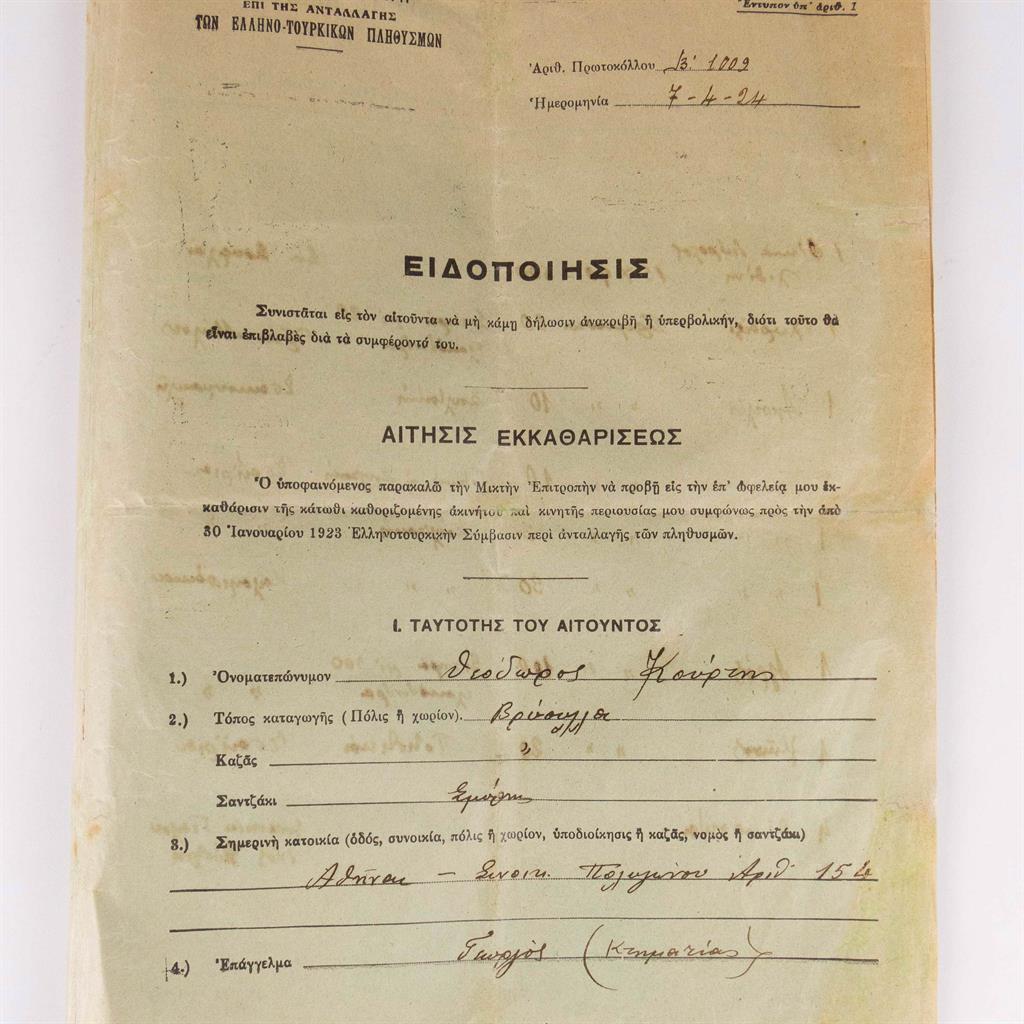 ΕΠΙ ΤΗΣ ΑΝΤΑΛΛΑΓΗΣ
ΤΩΝ ΕΛΛΗΝΟ-ΤΟΥΡΚΙΚΩΝ ΠΛΗΘΥΣΜΩΝ
Ἔντυπον ὑπ' ἀριθ. 1
Ἀριθ. Πρωτοκόλλου Β' 1009
Ἡμερομηνία 7-4-24
ΕΙΔΟΠΟΙΗΣΙΣ
Συνιστᾶται εἰς τὸν αἰτοῦντα νὰ μὴ κάμῃ δήλωσιν ἀνακριβῆ ἢ ὑπερβολικήν, διότι τοῦτο θὰ
εἶναι ἐπιβλαβὲς διὰ τὰ συμφέροντά του.
ΑΙΤΗΣΙΣ ΕΚΚΑΘΑΡΙΣΕΩΣ
Ὁ ὑποφαινόμενος παρακαλῶ τὴν Μικτὴν Ἐπιτροπὴν νὰ προβῇ εἰς τὴν ἐπ' ὠφελείᾳ μου ἐκ-
καθάρισιν τῆς κάτωθι καθοριζομένης ἀκινήτου καὶ κινητῆς περιουσίας μου συμφώνως πρὸς τὴν ἀπὸ
30 Ἰανουαρίου 1923 Ἑλληνοτουρκικὴν Σύμβασιν περὶ ἀνταλλαγῆς τῶν πληθυσμῶν.
Ι. ΤΑΥΤΟΤΗΣ ΤΟΥ ΑΙΤΟΥΝΤΟΣ
1.) Ὀνοματεπώνυμον Θεόδωρος Κούρτης
2.) Τόπος καταγωγῆς (Πόλις ἢ χωρίον). Βρύουλλα
Καζᾶς "
Σαντζάκι Σμύρνη
3.) Σημερινὴ κατοικία (ὁδός, συνοικία, πόλις ἢ χωρίον, ὑποδιοίκησις ἢ καζᾶς, νομὸς ἢ σαντζάκι)
Ἀθῆναι - Συνοικ. Πολυγώνου Ἀριθ
4.) Ἐπάγγελμα Γεωργὸς (Κτηματίας)